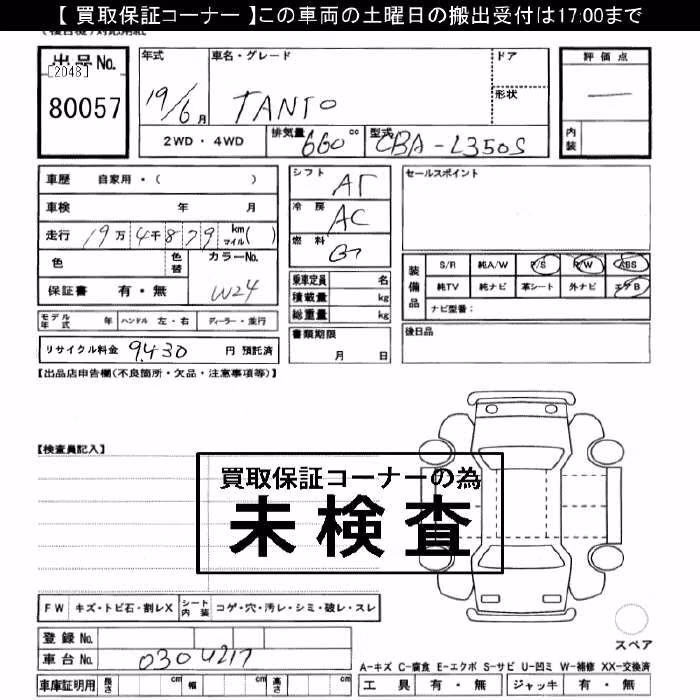 【 買取保証コーナー 】この車両の土曜日の搬出受付は17:00まで
出品No.
[2048]
80057
年式
19/6月
車名・グレード
TANTO
ドア
形状
評価点
—
内装
2WD・4WD
排気量 660 cc
型式 CBA-L350S
車歴 自家用・( )
車検 年 月
走行 19万4千879 km マイル( )
色
色替
カラーNo.
W24
保証書 有・無
シフト AT
冷房 AC
燃料 G
乗車定員 名
積載量 kg
総重量 kg
セールスポイント
装備品
S/R 純A/W P/S P/W ABS
純TV 純ナビ 革シート 外ナビ エアB
ナビ型番:
モデル年式 年 ハンドル 左・右 ディーラー・並行
書類期限
月 日
後日品
リサイクル料金 9,430 円 預託済
【出品店申告欄(不良箇所・欠品・注意事項等)】
【検査員記入】
買取保証コーナーの為
未検査
FW キズ・トビ石・割レX シート内装 コゲ・穴・汚レ・シミ・破レ・スレ
登録No.
車台No. 0304217
車庫証明用 長さ cm 幅 cm 高さ cm
スペア
A-キズ C-腐食 E-エクボ S-サビ U-凹ミ W-補修 XX-交換済
工具 有・無 ジャッキ 有・無